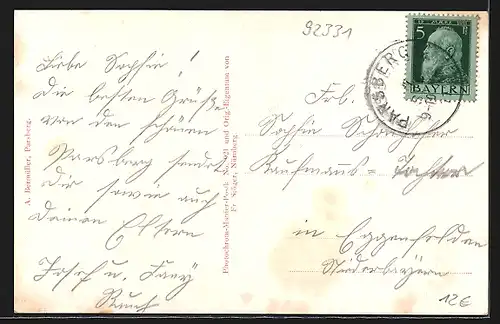 92331
Liebe Sophie!
Die besten Grüße
von dem schönen
Parsberg sendet
Dir sowie auch
Deinen Eltern
Josef u. Fany
A. Bermüller, Parsberg.
Photochrom-Monfor-Druck Verlagt und Orig.-Eigentum von
Fr. Saager, Nürnberg.
5 BAYERN
PARSBERG
Frl.
Sophie
Kaufmanns-Tochter
in Eggenfelden
Niederbayern
12€